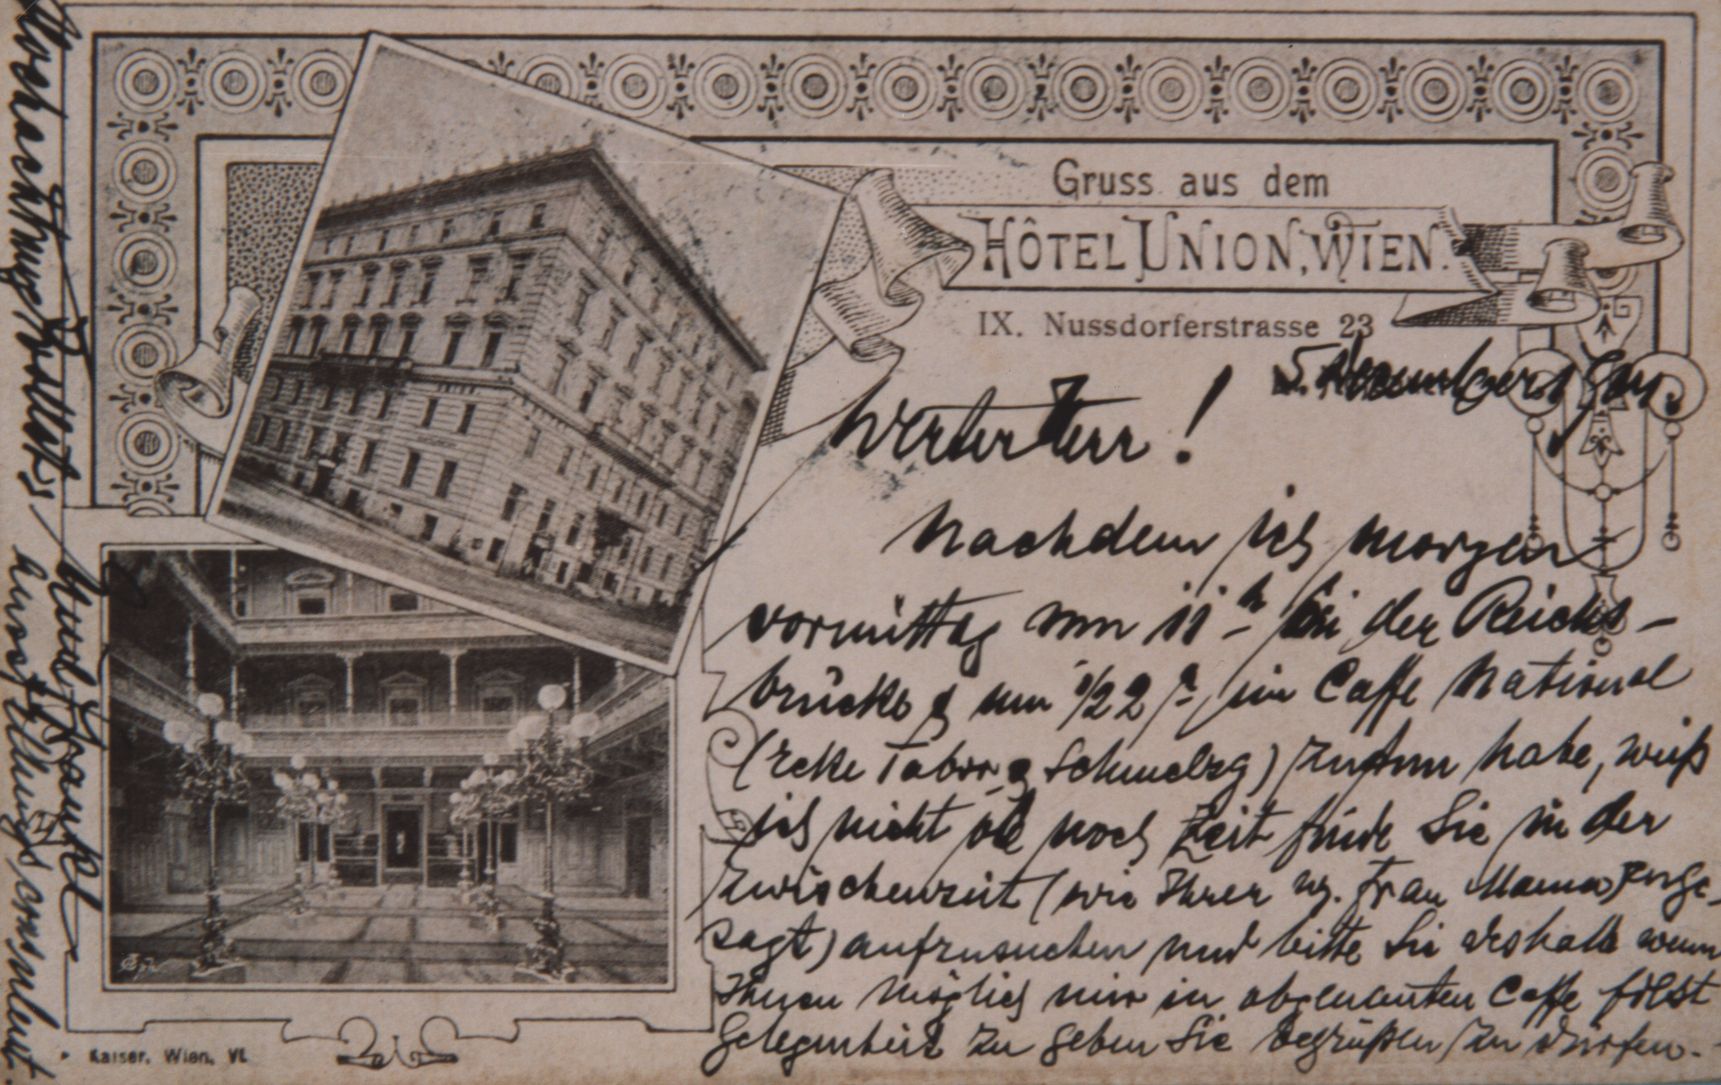 Gruss aus dem
HÔTEL UNION, WIEN.
IX. Nussdorferstrasse 23
5.
Werter Herr!
Nachdem ich morgen
vormittag um 11 h bei der Reichs-
brücke & um 1/2 2 h im Caffe National
(Ecke Tabor & Schmelzg) zu tun habe, weiß
ich nicht ob noch Zeit finde Sie in der
Zwischenzeit (wie Ihrer w. Frau Mama zuge-
sagt) aufzusuchen und bitte Sie deshalb wenn
Ihnen möglich mir in obgenannten Caffe
Gelegenheit zu geben Sie begrüßen zu dürfen.
Hochachtungsvollst
Kaiser, Wien, VI.